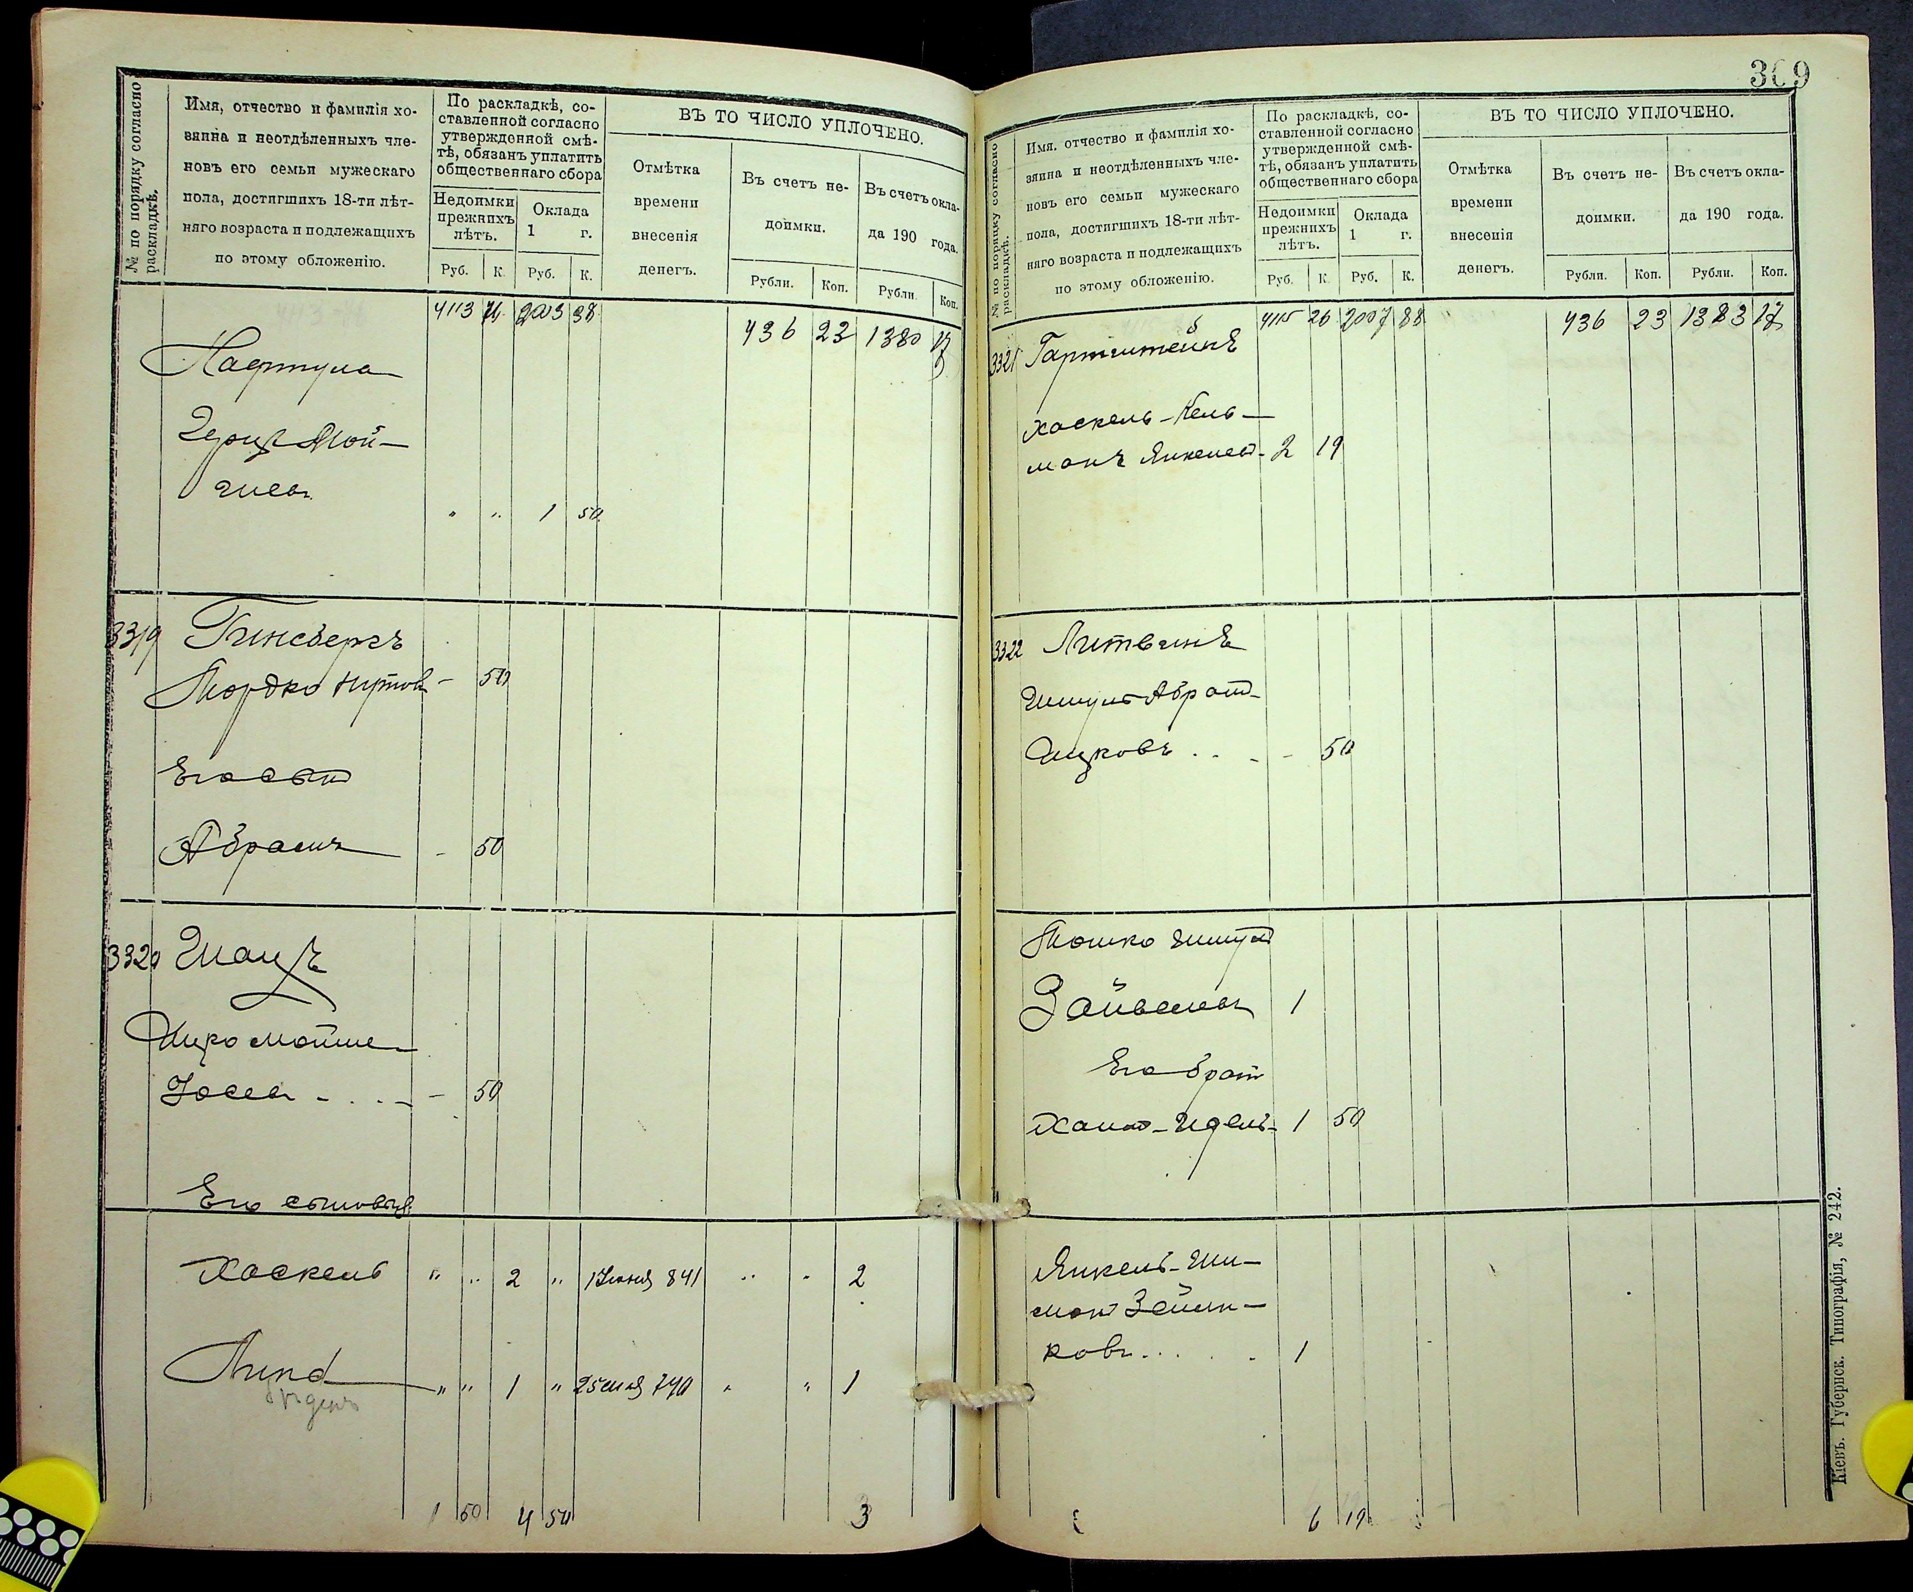 309
№ по порядку согласно раскладкѣ.
Имя, отчество и фамилія хо-
зяина и неотдѣленныхъ чле-
новъ его семьи мужескаго
пола, достигшихъ 18-ти лѣт-
няго возраста и подлежащихъ
по этому обложенію.
По раскладкѣ, со-
ставленной согласно
утвержденной смѣ-
тѣ, обязанъ уплатить
общественнаго сбора
Недоимки
прежнихъ
лѣтъ.
Оклада
1 г.
Руб. К. Руб. К.
ВЪ ТО ЧИСЛО УПЛОЧЕНО.
Отмѣтка
времени
внесенія
денегъ.
Въ счетъ не-
доимки.
Въ счетъ окла-
да 190 года.
Рубли. Коп. Рубли. Коп.
4113 2003 38 436 23 1380 17
Нафтула
Герцъ Мой-
" " 1 50
3319 Гинсбергъ
Мордко - 50
Его сын
Абрамъ - 50
3320 Шацъ
Мойше
Іосев - . . - - 50
Его сыновья
Хаскель " " 2 " 1 Іюня 841 " " 2
" " 1 " 25 мая 740 " " 1
1 50 4 50 3
№ по порядку согласно раскладкѣ.
Имя, отчество и фамилія хо-
зяина и неотдѣленныхъ чле-
новъ его семьи мужескаго
пола, достигшихъ 18-ти лѣт-
няго возраста и подлежащихъ
по этому обложенію.
По раскладкѣ, со-
ставленной согласно
утвержденной смѣ-
тѣ, обязанъ уплатить
общественнаго сбора
Недоимки
прежнихъ
лѣтъ.
Оклада
1 г.
Руб. К. Руб. К.
ВЪ ТО ЧИСЛО УПЛОЧЕНО.
Отмѣтка
времени
внесенія
денегъ.
Въ счетъ не-
доимки.
Въ счетъ окла-
да 190 года.
Рубли. Коп. Рубли. Коп.
4115 26 2007 88 436 23 1383 17
3321 Гартштейнъ
Хаскель-Кель-
манъ Янкелев - 2 19
3322 Литвинъ
Шмуль Абрам-
Ицковъ . . - - 50
Мошко Шмул
Зайвелев 1
Его брат
Хаим-Идель- 1 50
Янкель-Ши-
мон Зейли-
ковъ . . . . 1
6 19
Кіевъ. Губернск. Типографія, № 242.